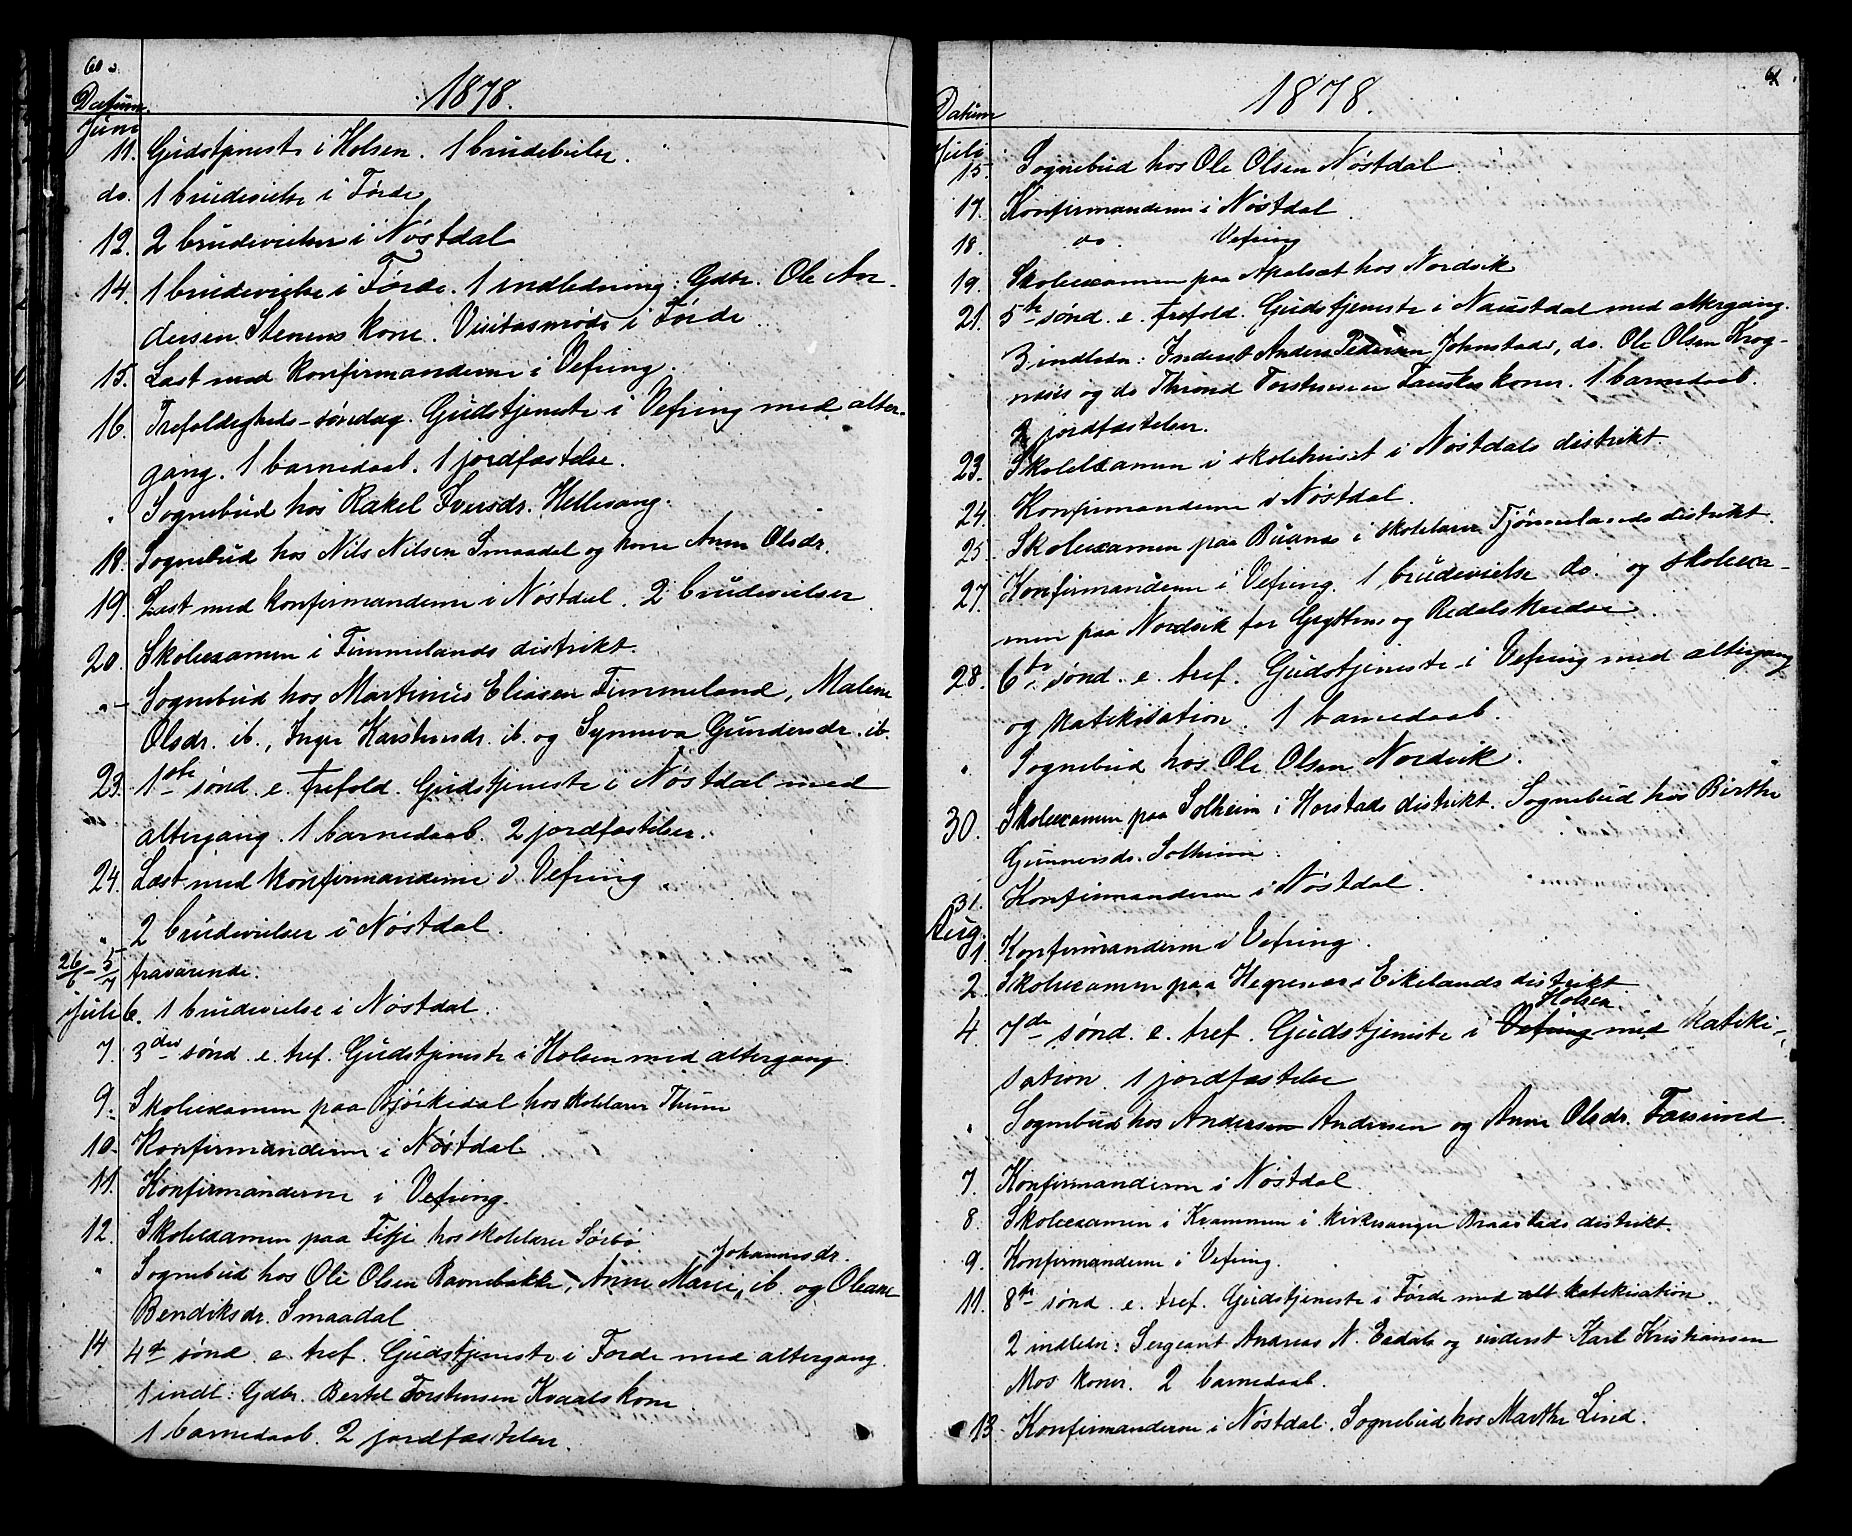 60
1878.
Datum.
Juni
11. Gudstjeneste i Holsen. 1 brudevielse.
do. 1 brudevielse i Førde
12. 2 brudevielser i Nøstdal
14. 1 brudevielse i Førde. 1 indledning: Gdbr. Ole An-
dersen Stenens kone. Visitasmøde i Førde
15. Læst med konfirmanderne i Vefring.
16. Trefoldigheds-søndag. Gudstjeneste i Vefring med alter-
gang. 1 barnedaab. 1 jordfæstelse.
" Sognebud hos Rakel Iversdr. Hellevang.
18. Sognebud hos Nils Nilsen Smaadal og kone Anne Olsdr.
19. Læst med konfirmanderne i Nøstdal. 2 brudevielser
20. Skoleexamen i Timmelands distrikt.
" Sognebud hos Martinus Eliasen Timmeland, Malene
Olsdr. ib., Inger Karstensdr. ib. og Synneva Gundersdr. ib.
23. 1ste sønd. e. trefold. Gudstjeneste i Nøstdal med
altergang. 1 barnedaab. 2 jordfæstelser.
24. Læst med konfirmanderne i Vefring
" 2 brudevielser i Nøstdal.
26/6 - 5/7 fraværende.
Juli 6. 1 brudevielse i Nøstdal.
7. 3die sønd. e. tref. Gudstjeneste i Holsen med altergang.
9. Skoleexamen paa Bjørkedal hos skolelærer Thune
10. Konfirmanderne i Nøstdal.
11. Konfirmanderne i Vefring.
12. Skoleexamen paa Fitje hos skolelærer Sørbø.
Johannesdr.
" Sognebud hos Ole Olsen Ravnebakke, Anne Marie, ib. og Oleane
Bendiksdr. Smaadal
14 4de sønd. e. tref. Gudstjeneste i Førde med altergang.
1 indl: Gdbr. Bertel Torstensen Kvaals kone
1 barnedaab. 2 jordfæstelser.
61
1878.
Datum
Juli
15. Sognebud hos Ole Olsen Nøstdal.
17. Konfirmanderne i Nøstdal
18. do. Vefring
19. Skoleexamen paa Apalset hos Nordvik
21. 5te sønd. e. trefold. Gudstjeneste i Naustdal med altergang.
3 indledn: Inderst Anders Pedersen Johnstad, do. Ole Olsen Krog-
næs og do Thrond Torstensen Fauskes koner. 1 barnedaab.
2 jordfæstelser.
23. Skoleexamen i skolehuset i Nøstdals distrikt.
24. Konfirmanderne i Nøstdal.
25. Skoleexamen paa Buanæs i skolelærer Tjønnelands distrikt.
27. Konfirmanderne i Vefring. 1 brudevielse do. og skoleexa-
men paa Nordvik for Gryttens og Redalskredse
28. 6te sønd. e. tref. Gudstjeneste i Vefring med altergang
og katekisation. 1 barnedaab.
" Sognebud hos Ole Olsen Nordvik.
30. Skoleexamen paa Solheim i Horstads distrikt. Sognebud hos Birthe
Gunnersdr. Solheim.
31. Konfirmanderne i Nøstdal.
Aug.
1. Konfirmanderne i Vefring.
2. Skoleexamen paa Hegrenæs i Eikelands distrikt
Holsen
4 7de sønd. e. tref. Gudstjeneste i Vefring med kateki-
sation. 1 jordfæstelse
" Sognebud hos Andersen Andersen og Anne Olsdr. Farsund.
7. Konfirmanderne i Nøstdal.
8. Skoleexamen i Kvammen i kirkesanger Braastads distrikt.
9. Konfirmanderne i Vefring.
11. 8de sønd. e. tref. Gudstjeneste i Førde med alt katekisation.
2 indledn: Sergeant Andreas N. Erdals og inderst Karl Kristiansen
Mos koner. 2 barnedaab.
13 Konfirmanderne i Nøstdal. Sognebud hos Marthe Lind.